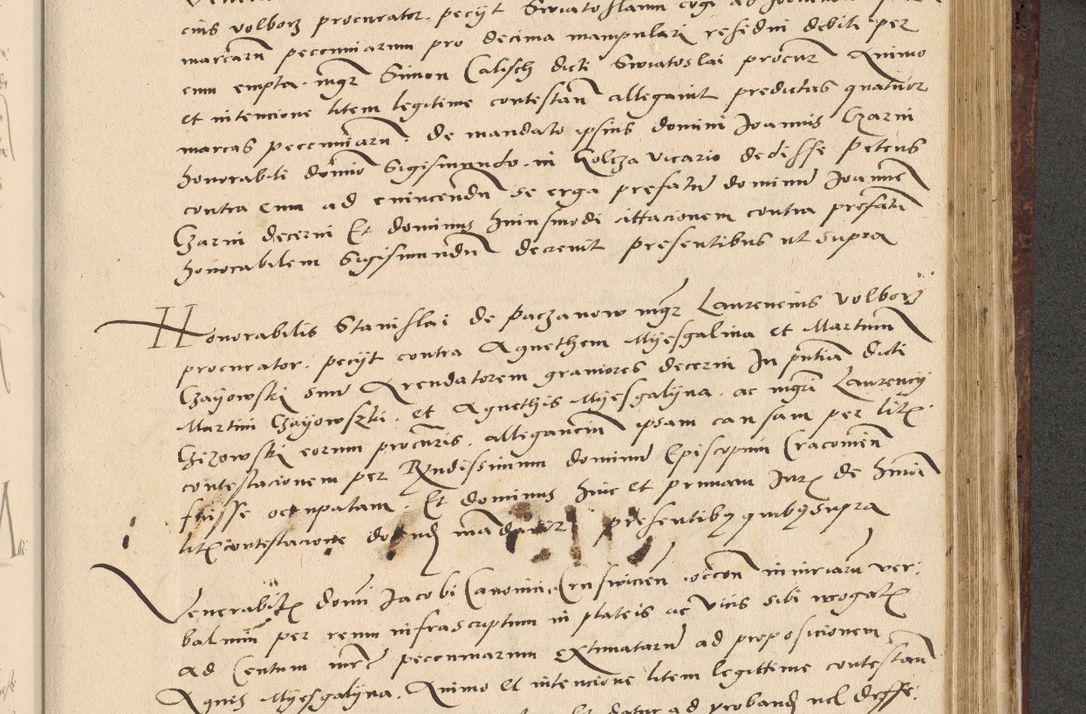 eius volborz procurator. pecijt Swiatoslaum cogi ad
marcarum pecuniarum pro decima manipulari resedui debiti per
eum empta. mgr Simon Calisch dicti Swiatoslai procur Animo
et intencione litem legitime contestan allegauit predictas quatuor
marcas pecuniarum. de mandato ipsius domini Joannis Czarni
honorabili domino Sigismundo in Kolcza vicario dedisse Petens
contra eum ad euincendum se erga prefatum dominum Joannem
Czarni decerni Et dominus huiusmodi cittacionem contra prefatum
honorabilem Sigismundum decreuit presentibus ut supra
Honorabilis Stanislai de Paczanow mgr Laurencius Volborz
procurator. pecijt contra Agnethem Myesgalina et Martinum
Czayowski eius Arendatorem graniores decerni In pntia dicti
Martini Czayowszki. et Agnethis Myesgalyna. ac mgri Laurencij
Czezowski eorum procuris. allegancium ipsam causam per litis
contestacionem per Rndissimum dominum Episcopum Cracouien
fuisse occupatam. Et dominus hinc et primam Juris de huiusmodi
litis contestacione docendum mandauit presentibus quibus supra
Venerabilis domini Jacobi Canonici Cruswicien occon iniuriarum ver:
balium per reum infrascriptum in plateis ac viis sibi irrogatis
ad Centum mrcs pecuniarum extimatarum ad proposicionem
Agnis Myesgalyna. Animo et intencione litem legittime contestan
datur ad probandum vel desse: